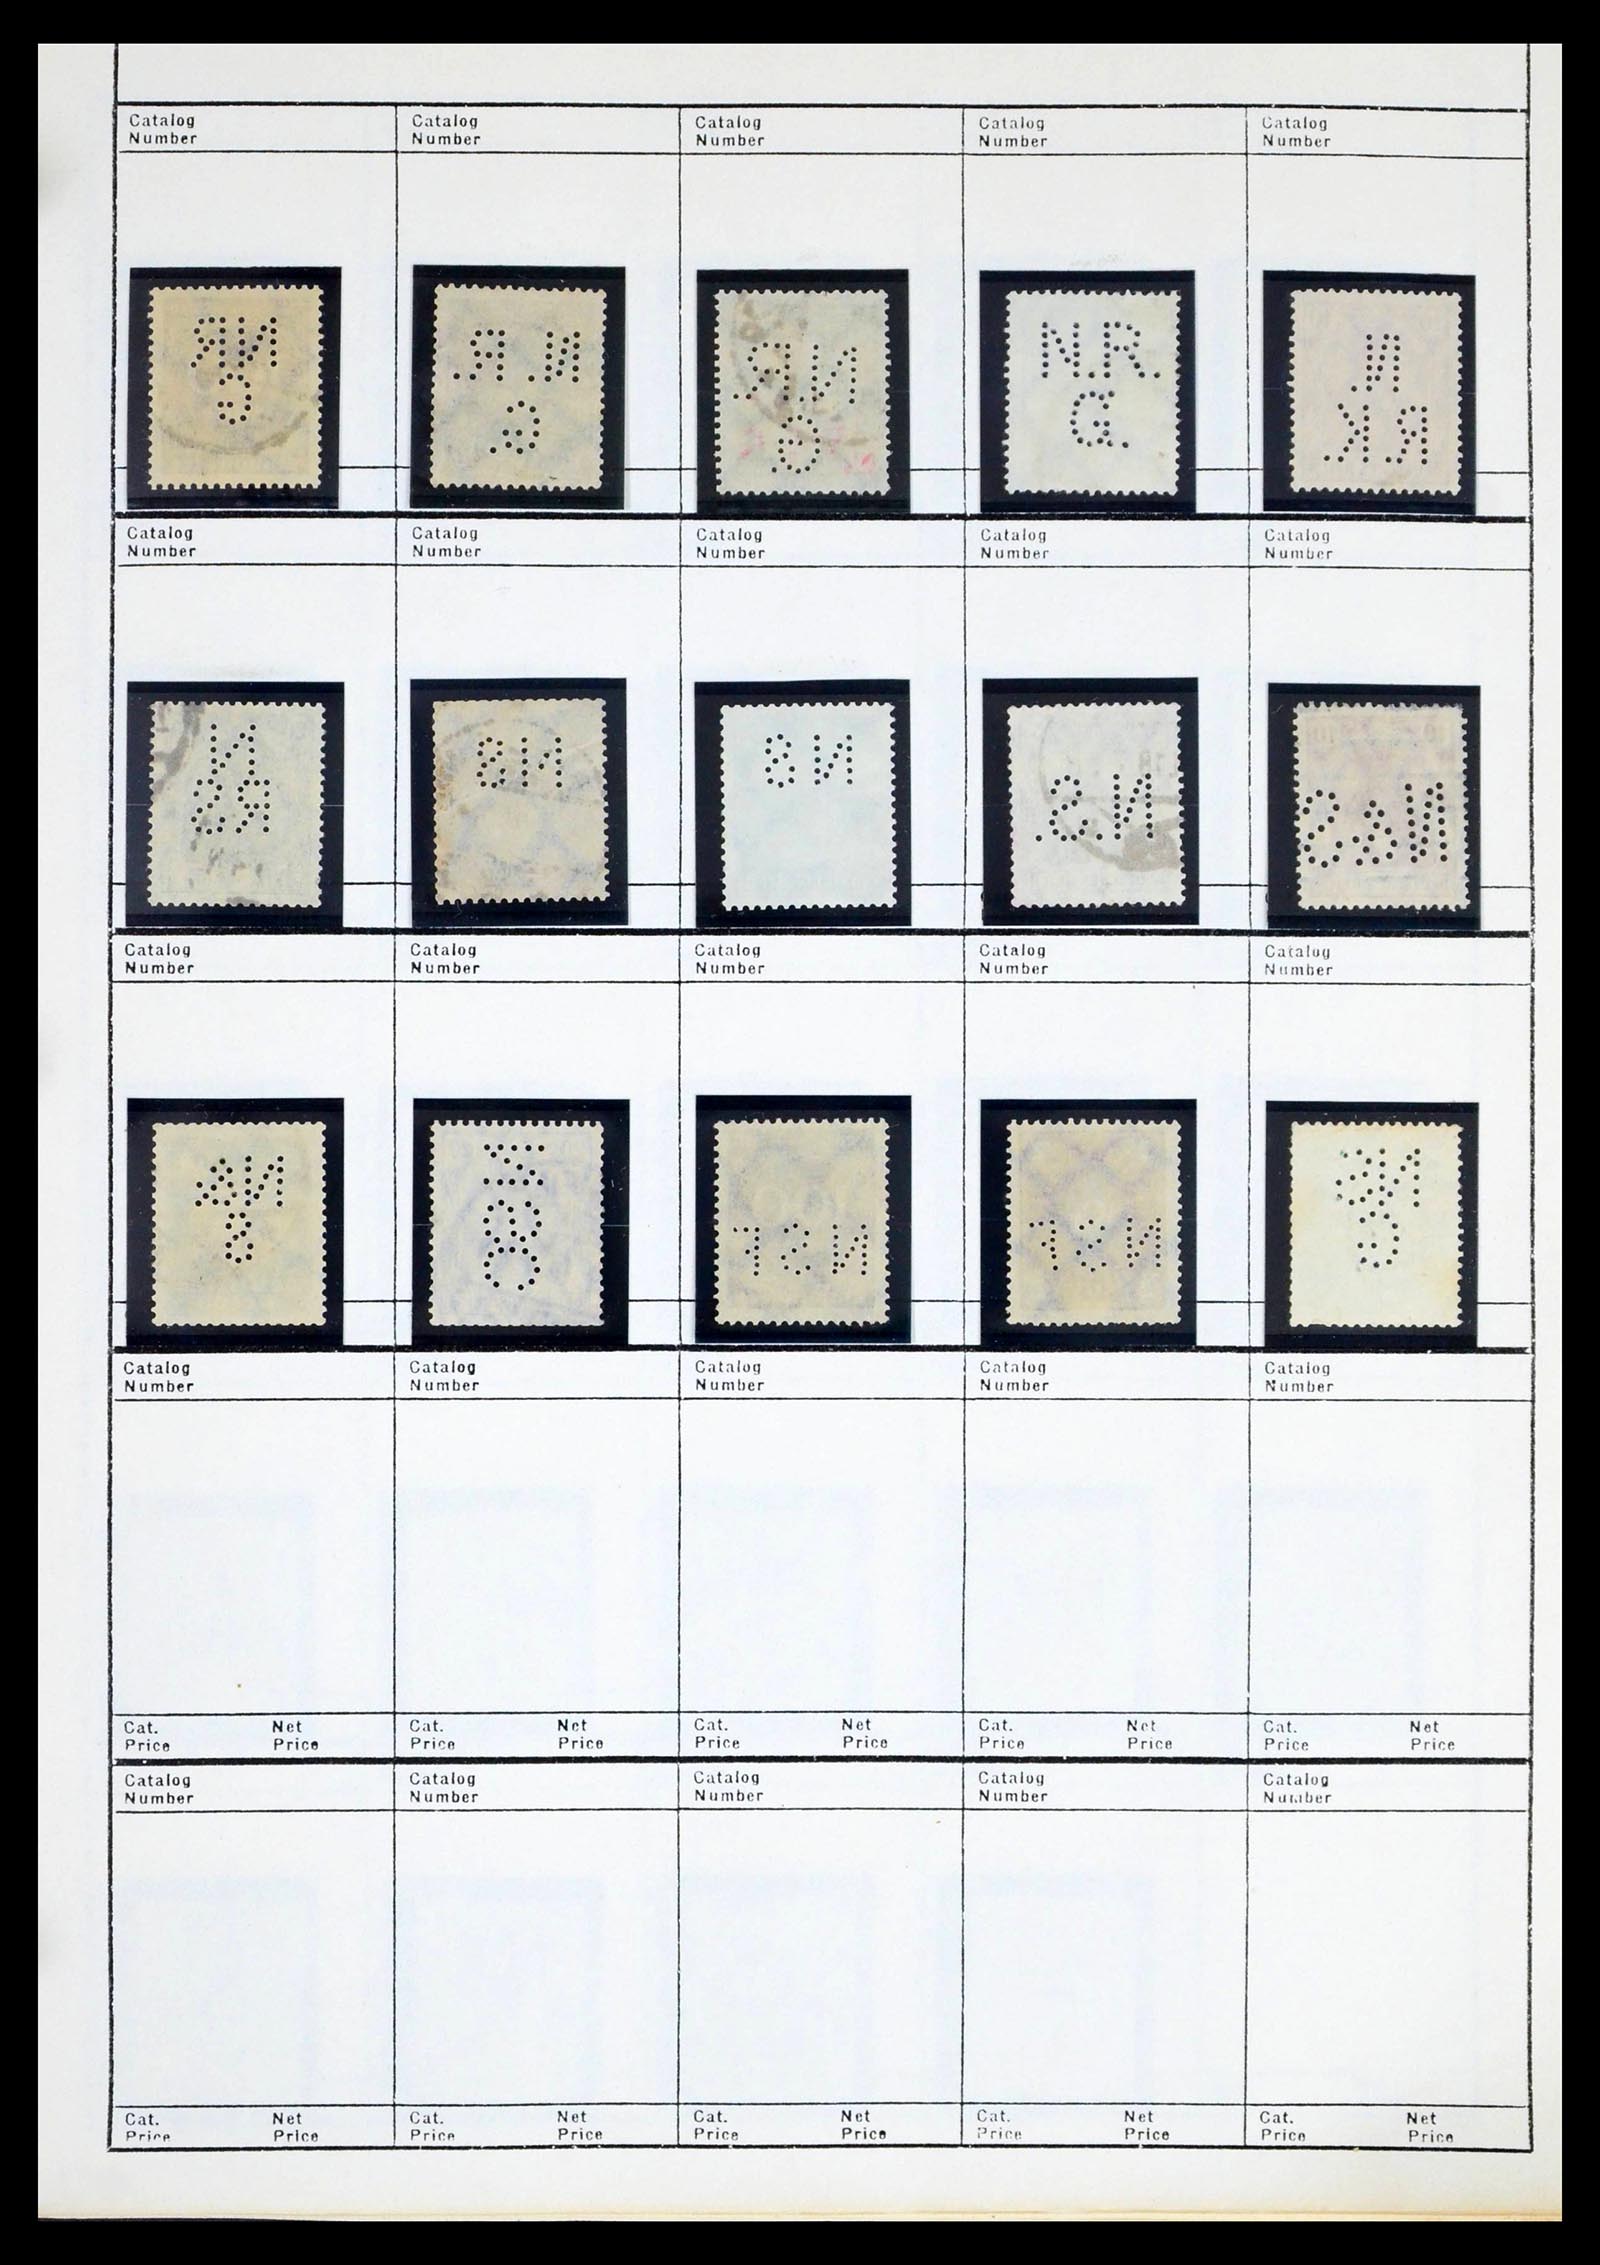 Catalog Number Catalog Number Catalog Number Catalog Number Catalog Number
NR NR. N.R. N.R. N.
G G. G G. RK.
Catalog Number Catalog Number Catalog Number Catalog Number Catalog Number
N NS NS N.S. N&S
RS
Catalog Number Catalog Number Catalog Number Catalog Number Catalog Number
NSF NSF NS
S G
Catalog Number Catalog Number Catalog Number Catalog Number Catalog Number
Cat. Price Net Price Cat. Price Net Price Cat. Price Net Price Cat. Price Net Price Cat. Price Net Price
Catalog Number Catalog Number Catalog Number Catalog Number Catalog Number
Cat. Price Net Price Cat. Price Net Price Cat. Price Net Price Cat. Price Net Price Cat. Price Net Price